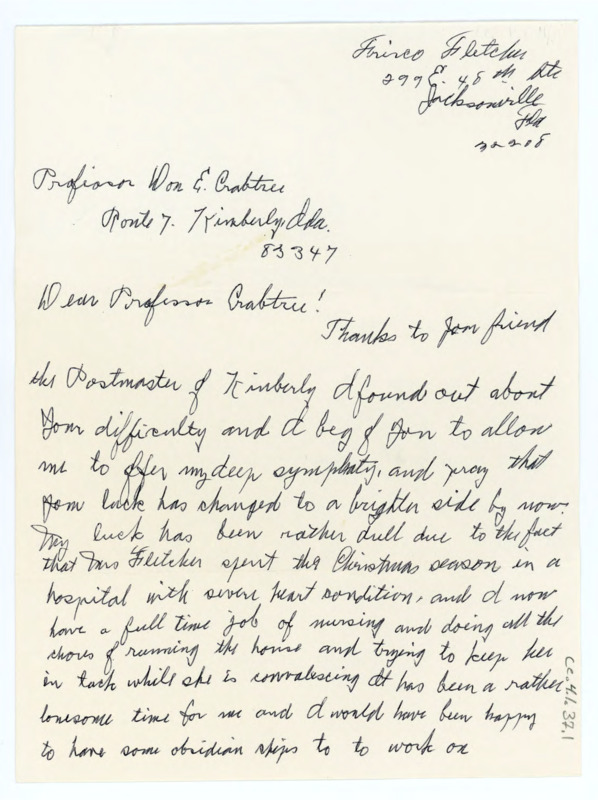 Frisco Fletcher
299 E. 48 th Str
Jacksonville
Fla
32208
Professor Don E. Crabtree
Route 7. Kimberly, Ida.
83347
Dear Professor Crabtree!
Thanks to your friend
the Postmaster of Kimberly I found out about
your difficulty and I beg of you to allow
me to offer my deep symphaty, and pray that
your luck has changed to a brighter side by now.
My luck has been rather dull due to the fact
that Mrs Fletcher spent the Christmas season in a
hospital with severe heart condition, and I now
have a full time job of nursing and doing all the
chores of running the house and trying to keep her
in tack while she is convalescing It has been a rather
lonesome time for me and I would have been happy
to have some obsidian chips to to work on